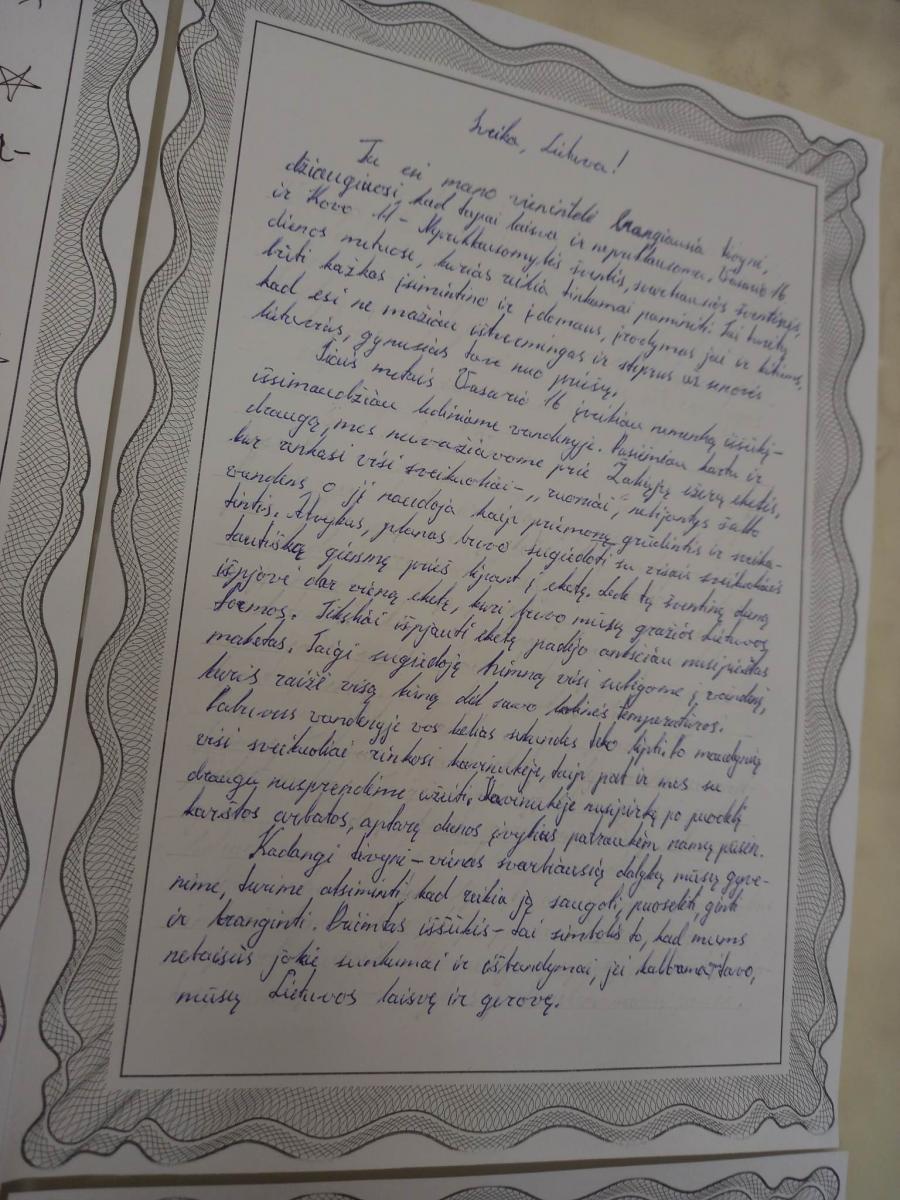 Sveika, Lietuva!
Tu esi mano vienintelė brangiausia tėvynė,
džiaugiuosi, kad tapai laisva ir nepriklausoma. Vasario 16
ir Kovo 11 - Nepriklausomybės šventės, svarbiausios šventinės
dienos metuose, kurias reikia tinkamai paminėti. Tai turėtų
būti kažkas įsimintino ir įdomaus, įrodymas jei ir kitiems,
kad esi ne mažiau ištvermingas ir stiprus už senovės
lietuvius, gynusius tave nuo priešų.
Šiais metais Vasario 16 įveikiau nemenką iššūkį-
išsimaudžiau lediniame vandenyje. Pasiėmiau kartu ir
draugą, mes nuvažiavome prie ežerų eketės,
kur renkasi visi sveikuoliai - „ruoniai“, nebijantys šalto
vandens, o jį naudoja kaip priemonę grūdintis ir sveika-
tintis. Atvykus, planas buvo sugiedoti su visais sveikuoliais
tautišką giesmę prieš lipant į eketę. Lede tą šventinę dieną
išpjovė dar vieną eketę, kuri buvo mūsų gražios Lietuvos
formos. Tiksliai išpjauti eketę padėjo anksčiau nusipieštas
maketas. Taigi sugiedoję himną visi sulipome į vandenį,
kuris raižė visą kūną dėl savo ledinės temperatūros.
Pabuvus vandenyje vos kelias sekundes teko lipti. Po maudynių
visi sveikuoliai rinkosi kavinukėje, taip pat ir mes su
draugu nusprendėme užeiti. Kavinukėje nusipirkę po puodelį
karštos arbatos, aptarę dienos įvykius patraukėm namų pusėn.
Kadangi tėvynė - vienas svarbiausių dalykų mūsų gyve-
nime, turime atsiminti, kad reikia ją saugoti, puoselėti, ginti
ir branginti. Priimtas iššūkis - tai simbolis to, kad mums
nebaisūs jokie sunkumai ir išbandymai, jei kalbama tavo,
mūsų Lietuvos laisvę ir gerovę.